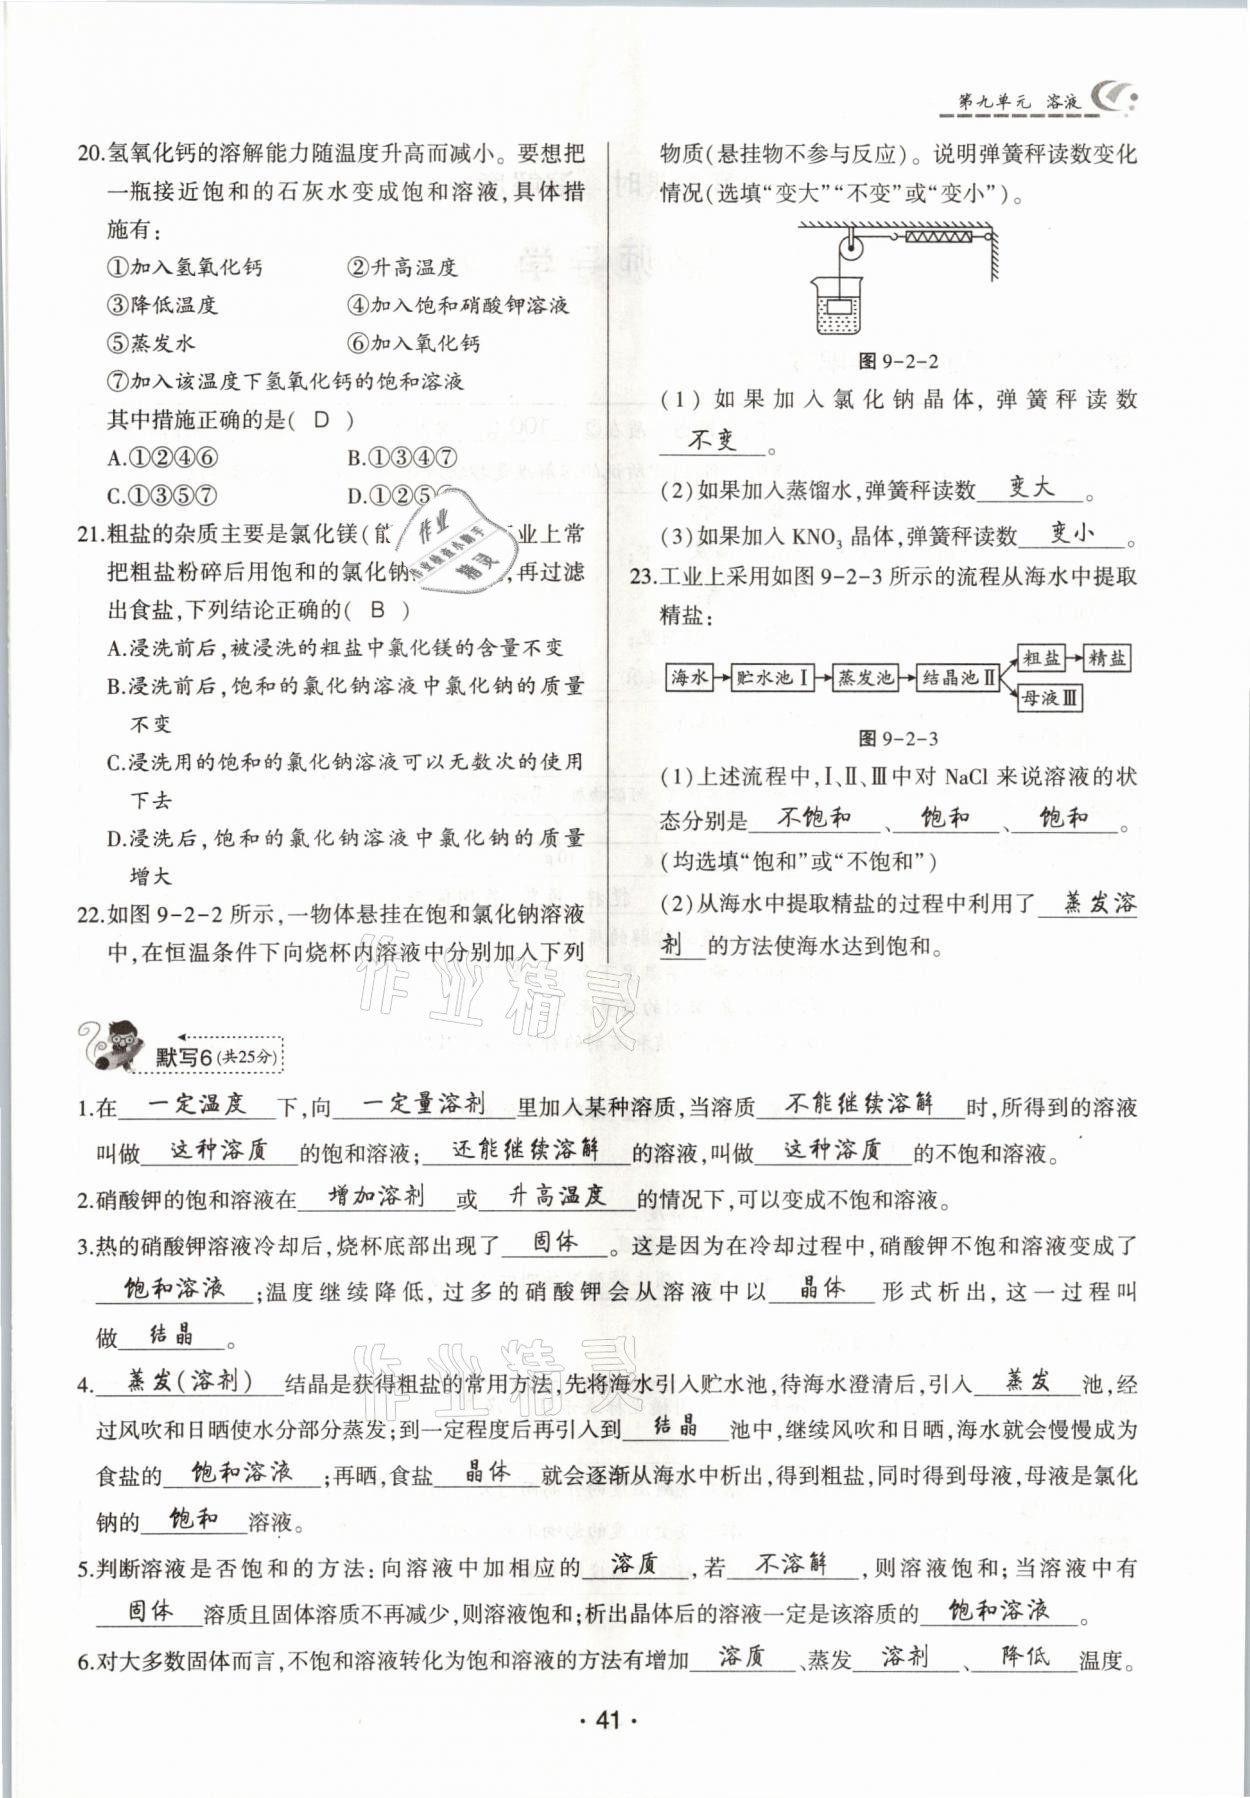 第九单元 溶液
20.氢氧化钙的溶解能力随温度升高而减小。要想把
一瓶接近饱和的石灰水变成饱和溶液,具体措
施有:
①加入氢氧化钙 ②升高温度
③降低温度 ④加入饱和硝酸钾溶液
⑤蒸发水 ⑥加入氧化钙
⑦加入该温度下氢氧化钙的饱和溶液
其中措施正确的是( D )
A.①②④⑥ B.①③④⑦
C.①③⑤⑦ D.①②⑤
21.粗盐的杂质主要是氯化镁( 业上常
把粗盐粉碎后用饱和的氯化钠 ,再过滤
出食盐,下列结论正确的( B )
A.浸洗前后,被浸洗的粗盐中氯化镁的含量不变
B.浸洗前后,饱和的氯化钠溶液中氯化钠的质量
不变
C.浸洗用的饱和的氯化钠溶液可以无数次的使用
下去
D.浸洗后,饱和的氯化钠溶液中氯化钠的质量
增大
22.如图 9-2-2 所示,一物体悬挂在饱和氯化钠溶液
中,在恒温条件下向烧杯内溶液中分别加入下列
物质(悬挂物不参与反应)。说明弹簧秤读数变化
情况(选填“变大”“不变”或“变小”)。
图 9-2-2
(1)如果加入氯化钠晶体,弹簧秤读数
不变 。
(2)如果加入蒸馏水,弹簧秤读数 变大 。
(3)如果加入 KNO₃ 晶体,弹簧秤读数 变小 。
23.工业上采用如图 9-2-3 所示的流程从海水中提取
精盐:
海水 贮水池Ⅰ 蒸发池 结晶池Ⅱ 粗盐 精盐
母液Ⅲ
图 9-2-3
(1)上述流程中,Ⅰ、Ⅱ、Ⅲ中对 NaCl 来说溶液的状
态分别是 不饱和 、 饱和 、 饱和 。
(均选填“饱和”或“不饱和”)
(2)从海水中提取精盐的过程中利用了 蒸发溶
剂 的方法使海水达到饱和。
作业检查小助手
作业精灵
默写6(共25分)
1.在 一定温度 下,向 一定量溶剂 里加入某种溶质,当溶质 不能继续溶解 时,所得到的溶液
叫做 这种溶质 的饱和溶液; 还能继续溶解 的溶液,叫做 这种溶质 的不饱和溶液。
2.硝酸钾的饱和溶液在 增加溶剂 或 升高温度 的情况下,可以变成不饱和溶液。
3.热的硝酸钾溶液冷却后,烧杯底部出现了 固体 。这是因为在冷却过程中,硝酸钾不饱和溶液变成了
饱和溶液 ;温度继续降低,过多的硝酸钾会从溶液中以 晶体 形式析出,这一过程叫
做 结晶 。
作业精灵
4. 蒸发(溶剂) 结晶是获得粗盐的常用方法,先将海水引入贮水池,待海水澄清后,引入 蒸发 池,经
过风吹和日晒使水分部分蒸发;到一定程度后再引入到 结晶 池中,继续风吹和日晒,海水就会慢慢成为
食盐的 饱和溶液 ;再晒,食盐 晶体 就会逐渐从海水中析出,得到粗盐,同时得到母液,母液是氯化
钠的 饱和 溶液。
5.判断溶液是否饱和的方法:向溶液中加相应的 溶质 ,若 不溶解 ,则溶液饱和;当溶液中有
固体 溶质且固体溶质不再减少,则溶液饱和;析出晶体后的溶液一定是该溶质的 饱和溶液 。
6.对大多数固体而言,不饱和溶液转化为饱和溶液的方法有增加 溶质 、蒸发 溶剂 、 降低 温度。
· 41 ·